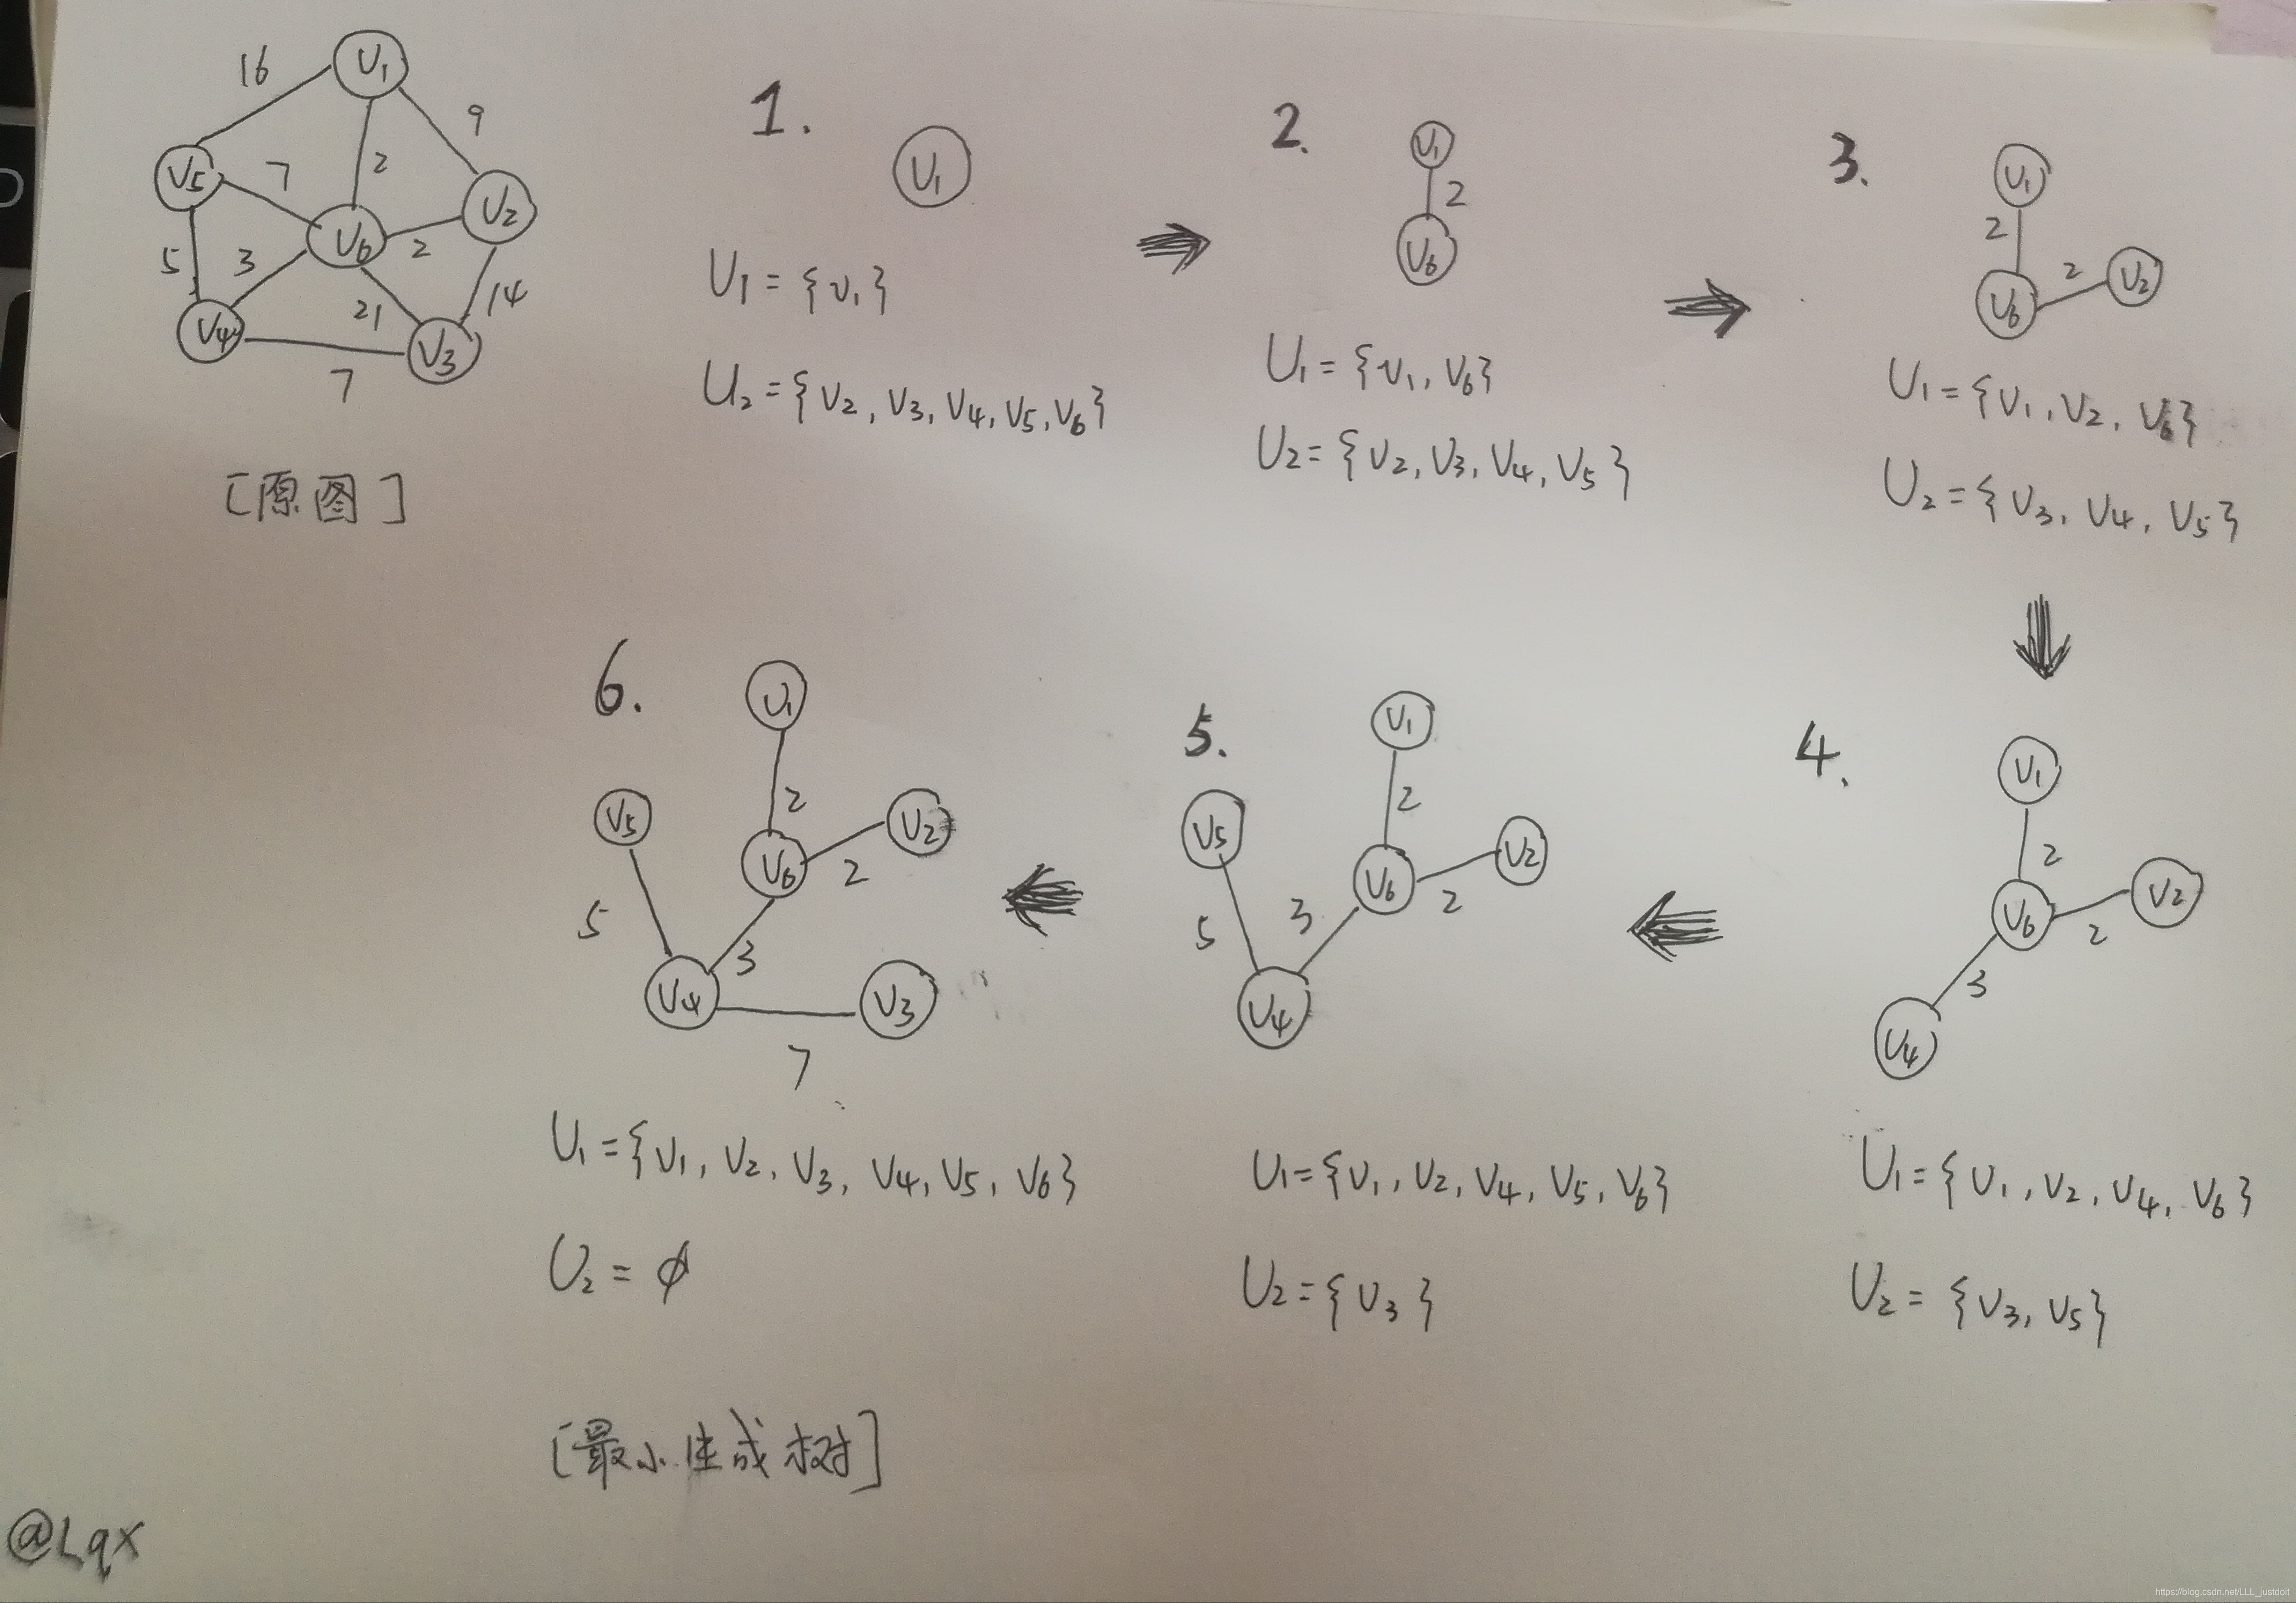 16
V₁
9
V₅
7
2
V₂
5
3
V₆
2
14
21
V₄
V₃
7
[原图]
1.
V₁
U₁={v₁}
U₂={v₂,v₃,v₄,v₅,v₆}
2.
V₁
2
V₆
U₁={v₁,v₆}
U₂={v₂,v₃,v₄,v₅}
3.
V₁
2
2
V₂
V₆
U₁={v₁,v₂,v₆}
U₂={v₃,v₄,v₅}
4.
V₁
2
V₂
V₆
2
3
V₄
U₁={v₁,v₂,v₄,v₆}
U₂={v₃,v₅}
5.
V₁
2
V₅
V₂
V₆
2
5
3
V₄
U₁={v₁,v₂,v₄,v₅,v₆}
U₂={v₃}
6.
V₁
2
V₅
V₂
V₆
2
5
3
V₄
V₃
7
U₁={v₁,v₂,v₃,v₄,v₅,v₆}
U₂=φ
[最小生成树]
@Lqx
https://blog.csdn.net/LLL_justdoit